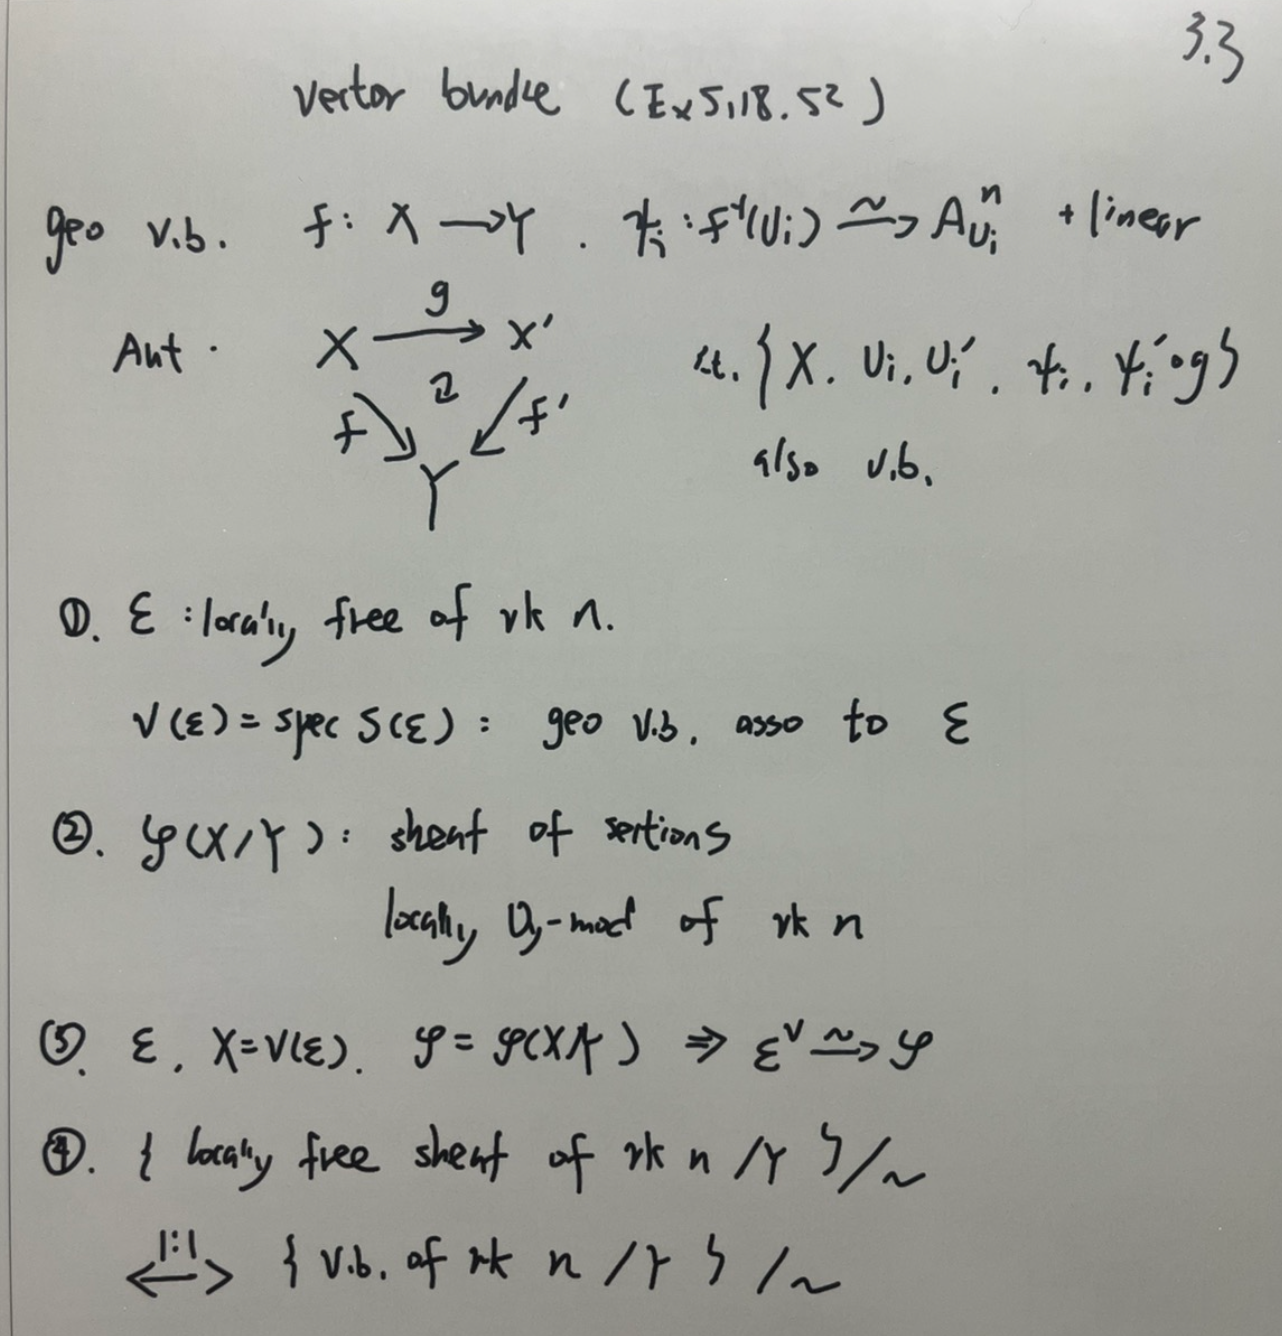 3.3
vector bundle (Ex 5.18. 52)
geo v.b. f: X → Y . ψᵢ : f⁻¹(Uᵢ) ⥲ Aⁿ_Uᵢ + linear
Aut . X → X' g
f ↻ f' Y
s.t. { X. Uᵢ, Uᵢ'. ψᵢ. ψᵢ'∘g }
also v.b.
①. ε : locally free of rk n.
V(ε) = spec S(ε) : geo v.b. asso to ε
②. 𝒮(X/Y) : sheaf of sections
locally O_Y-mod of rk n
③. ε, X=V(ε). 𝒮 = 𝒮(X/Y) ⇒ ε^∨ ⥲ 𝒮
④. { locally free sheaf of rk n /Y } /~
⟷ 1:1 { v.b. of rk n /Y } /~